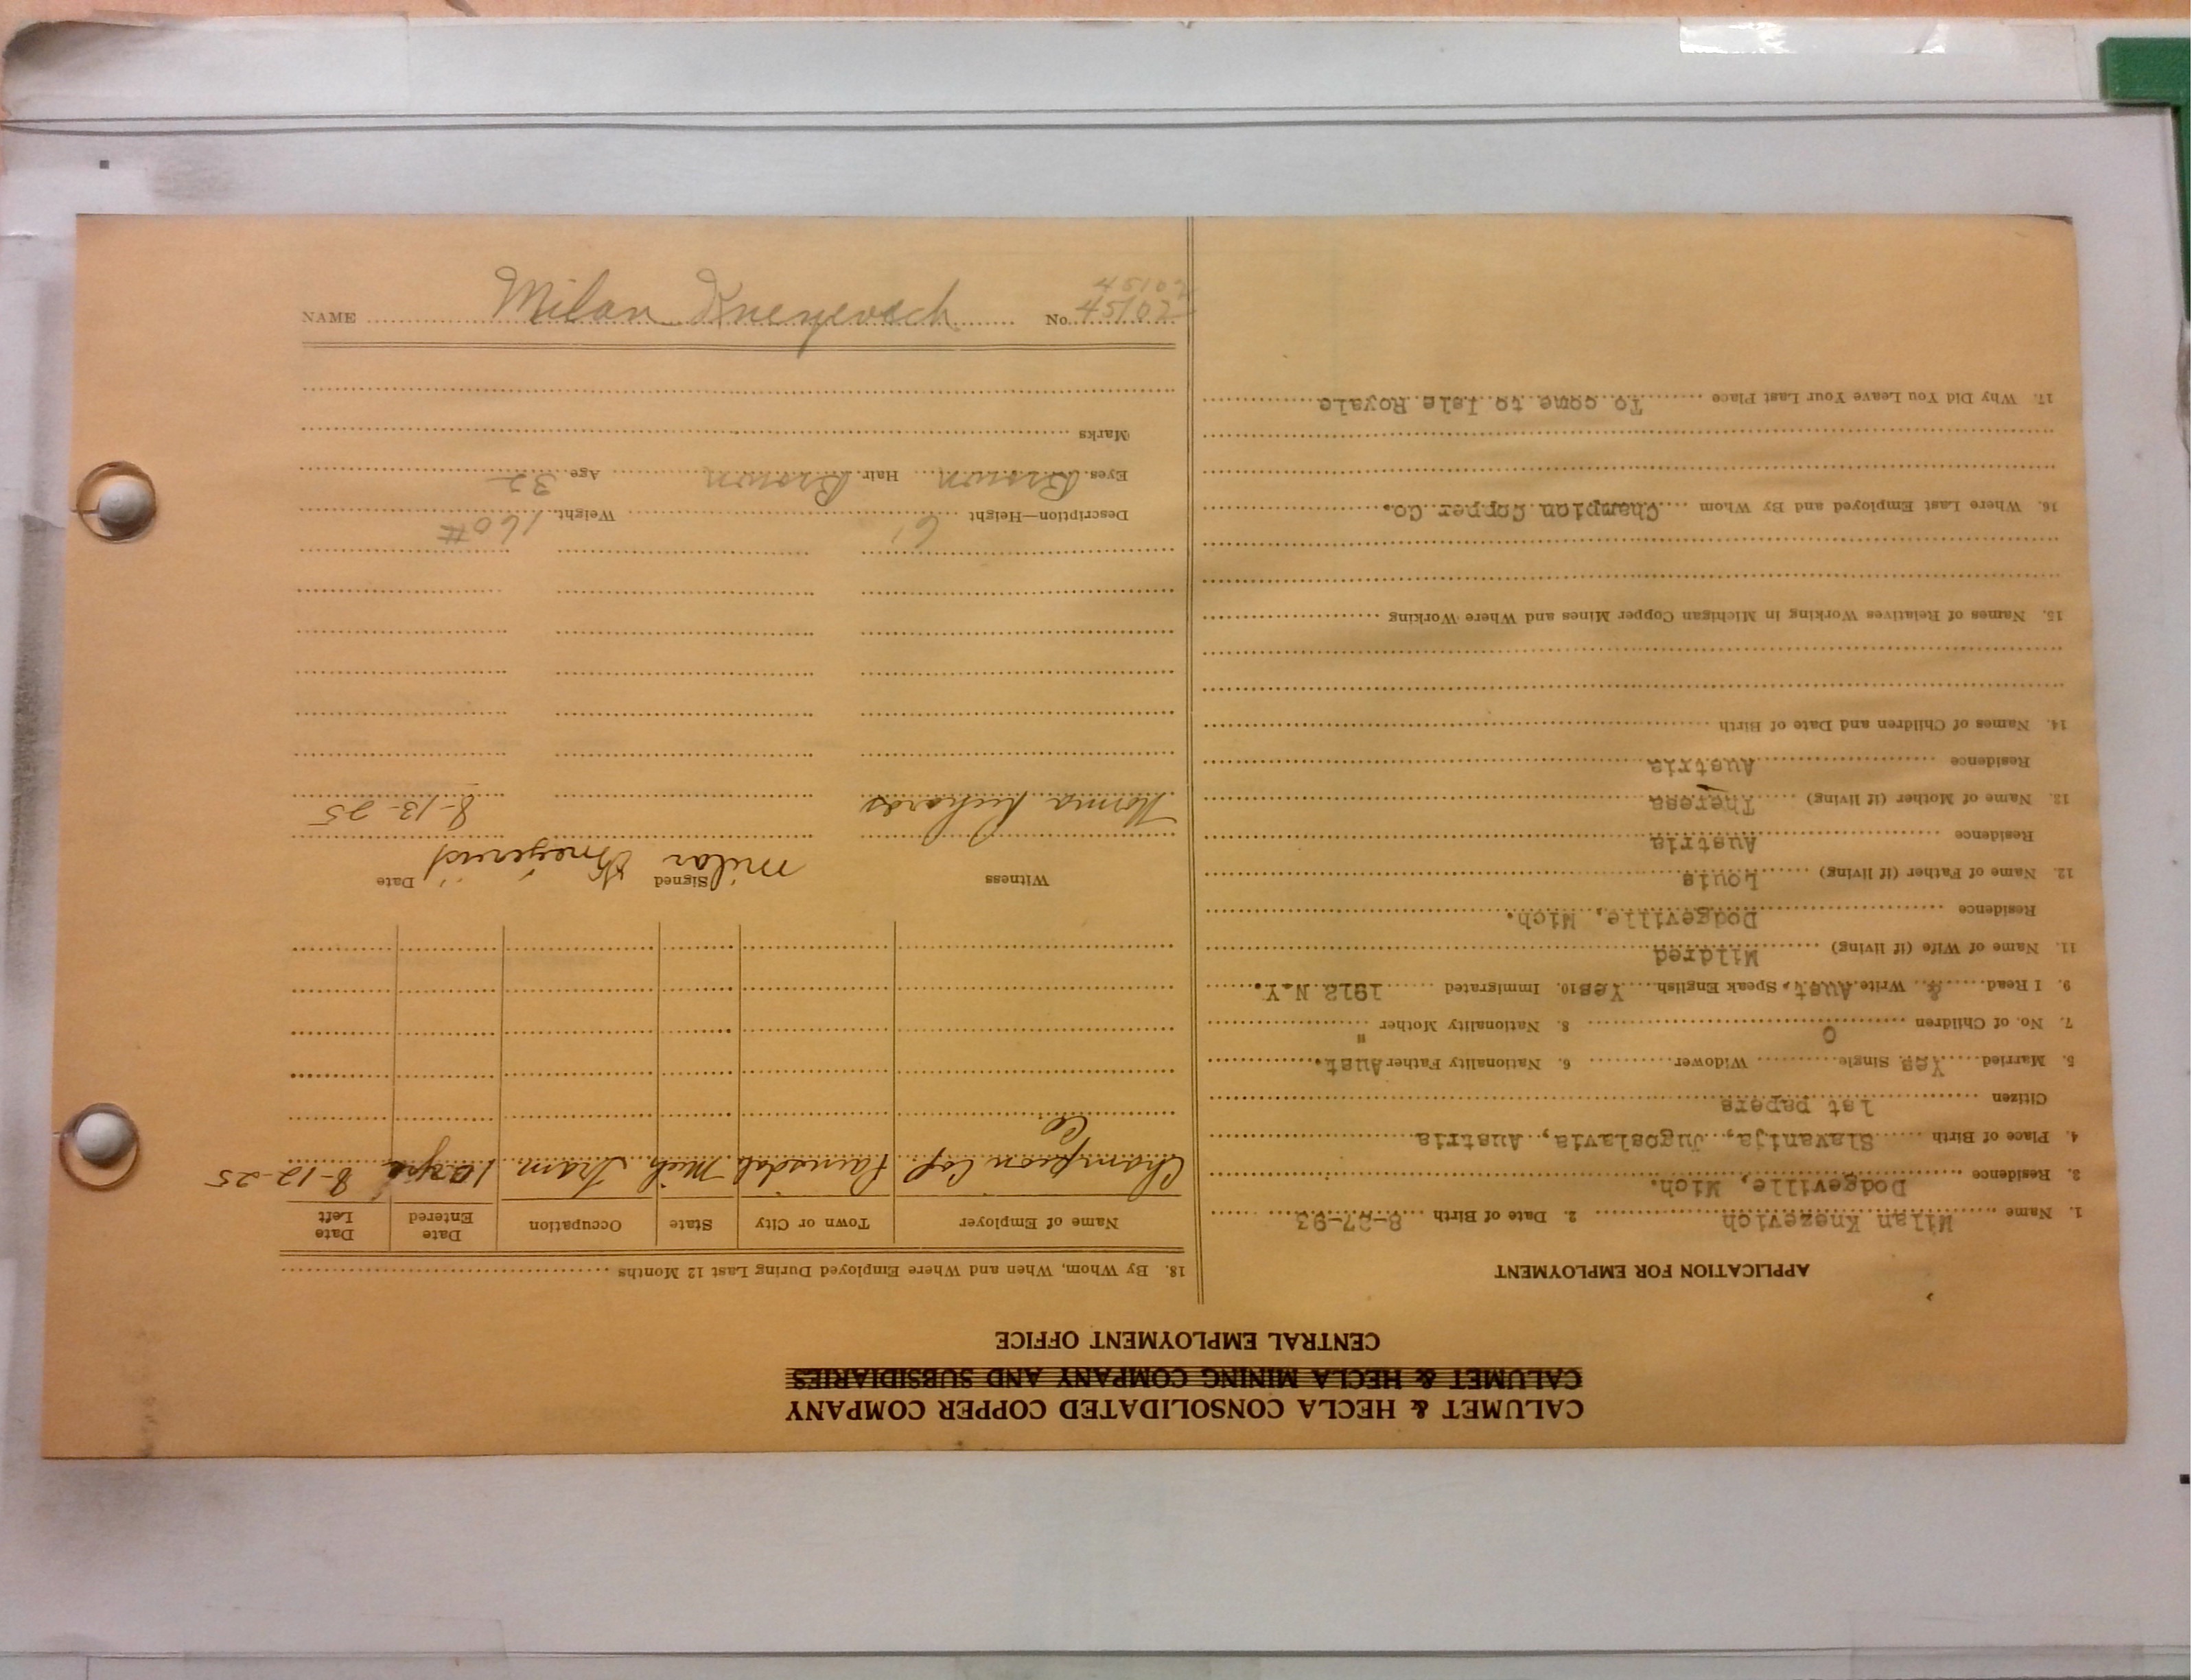 CALUMET & HECLA CONSOLIDATED COPPER COMPANY
CALUMET & HECLA MINING COMPANY AND SUBSIDIARIES
CENTRAL EMPLOYMENT OFFICE
APPLICATION FOR EMPLOYMENT
1. Name Milan Knezevich 2. Date of Birth 8-27-93
3. Residence Dodgeville, Mich.
4. Place of Birth Slavanija, Jugoslavia, Austria
Citizen 1st papers
5. Married Yes Single Widower 6. Nationality Father Aust.
7. No. of Children 0 8. Nationality Mother "
9. I Read & Write Aust. Speak English Yes 10. Immigrated 1912 N.Y.
11. Name of Wife (if living) Mildred
Residence Dodgeville, Mich.
12. Name of Father (if living) Louis
Residence Austria
13. Name of Mother (if living) Theresa
Residence Austria
14. Names of Children and Date of Birth
15. Names of Relatives Working in Michigan Copper Mines and Where Working
16. Where Last Employed and By Whom Champion Copper Co.
17. Why Did You Leave Your Last Place To come to Isle Royale
18. By Whom, When and Where Employed During Last 12 Months
Name of Employer Town or City State Occupation Date Entered Date Left
Champion Cop. Co. Painsdale Mich Tram 8-12-25
Witness Signed Date
Milan
Norma Richards 8-13-25
Description—Height 6' Weight 160#
Eyes Brown Hair Brown Age 32
Marks
NAME Milan Knezevich No. 45102
45102